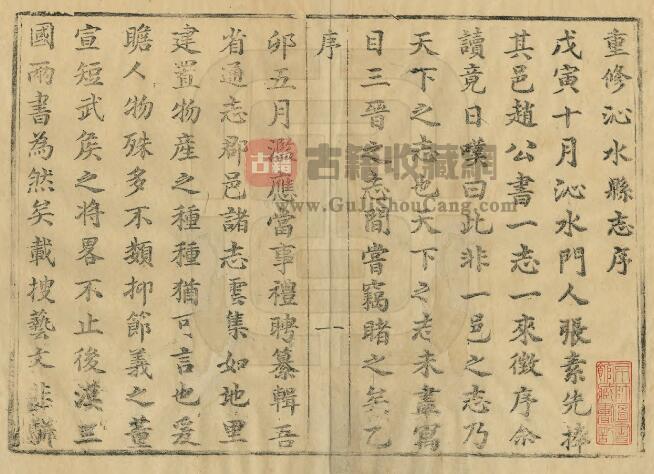 重修沁水縣志序
戊寅十月沁水門人張素先捧
其邑趙公書一志一來徵序余
讀竟日嘆曰此非一邑之志乃
天下之志也天下之志未盡寓
目三晉之志間嘗竊睹之矣乙
序
一
卯五月濫應當事禮聘纂輯吾
省通志郡邑諸志雲集如地里
建置物產之種種猶可言也爰
瞻人物殊多不類抑節義之董
宣短武矦之將畧不止後漢三
國兩書為然矣載搜藝文非駢
古籍
古籍收藏網
www.GuJiShouCang.com